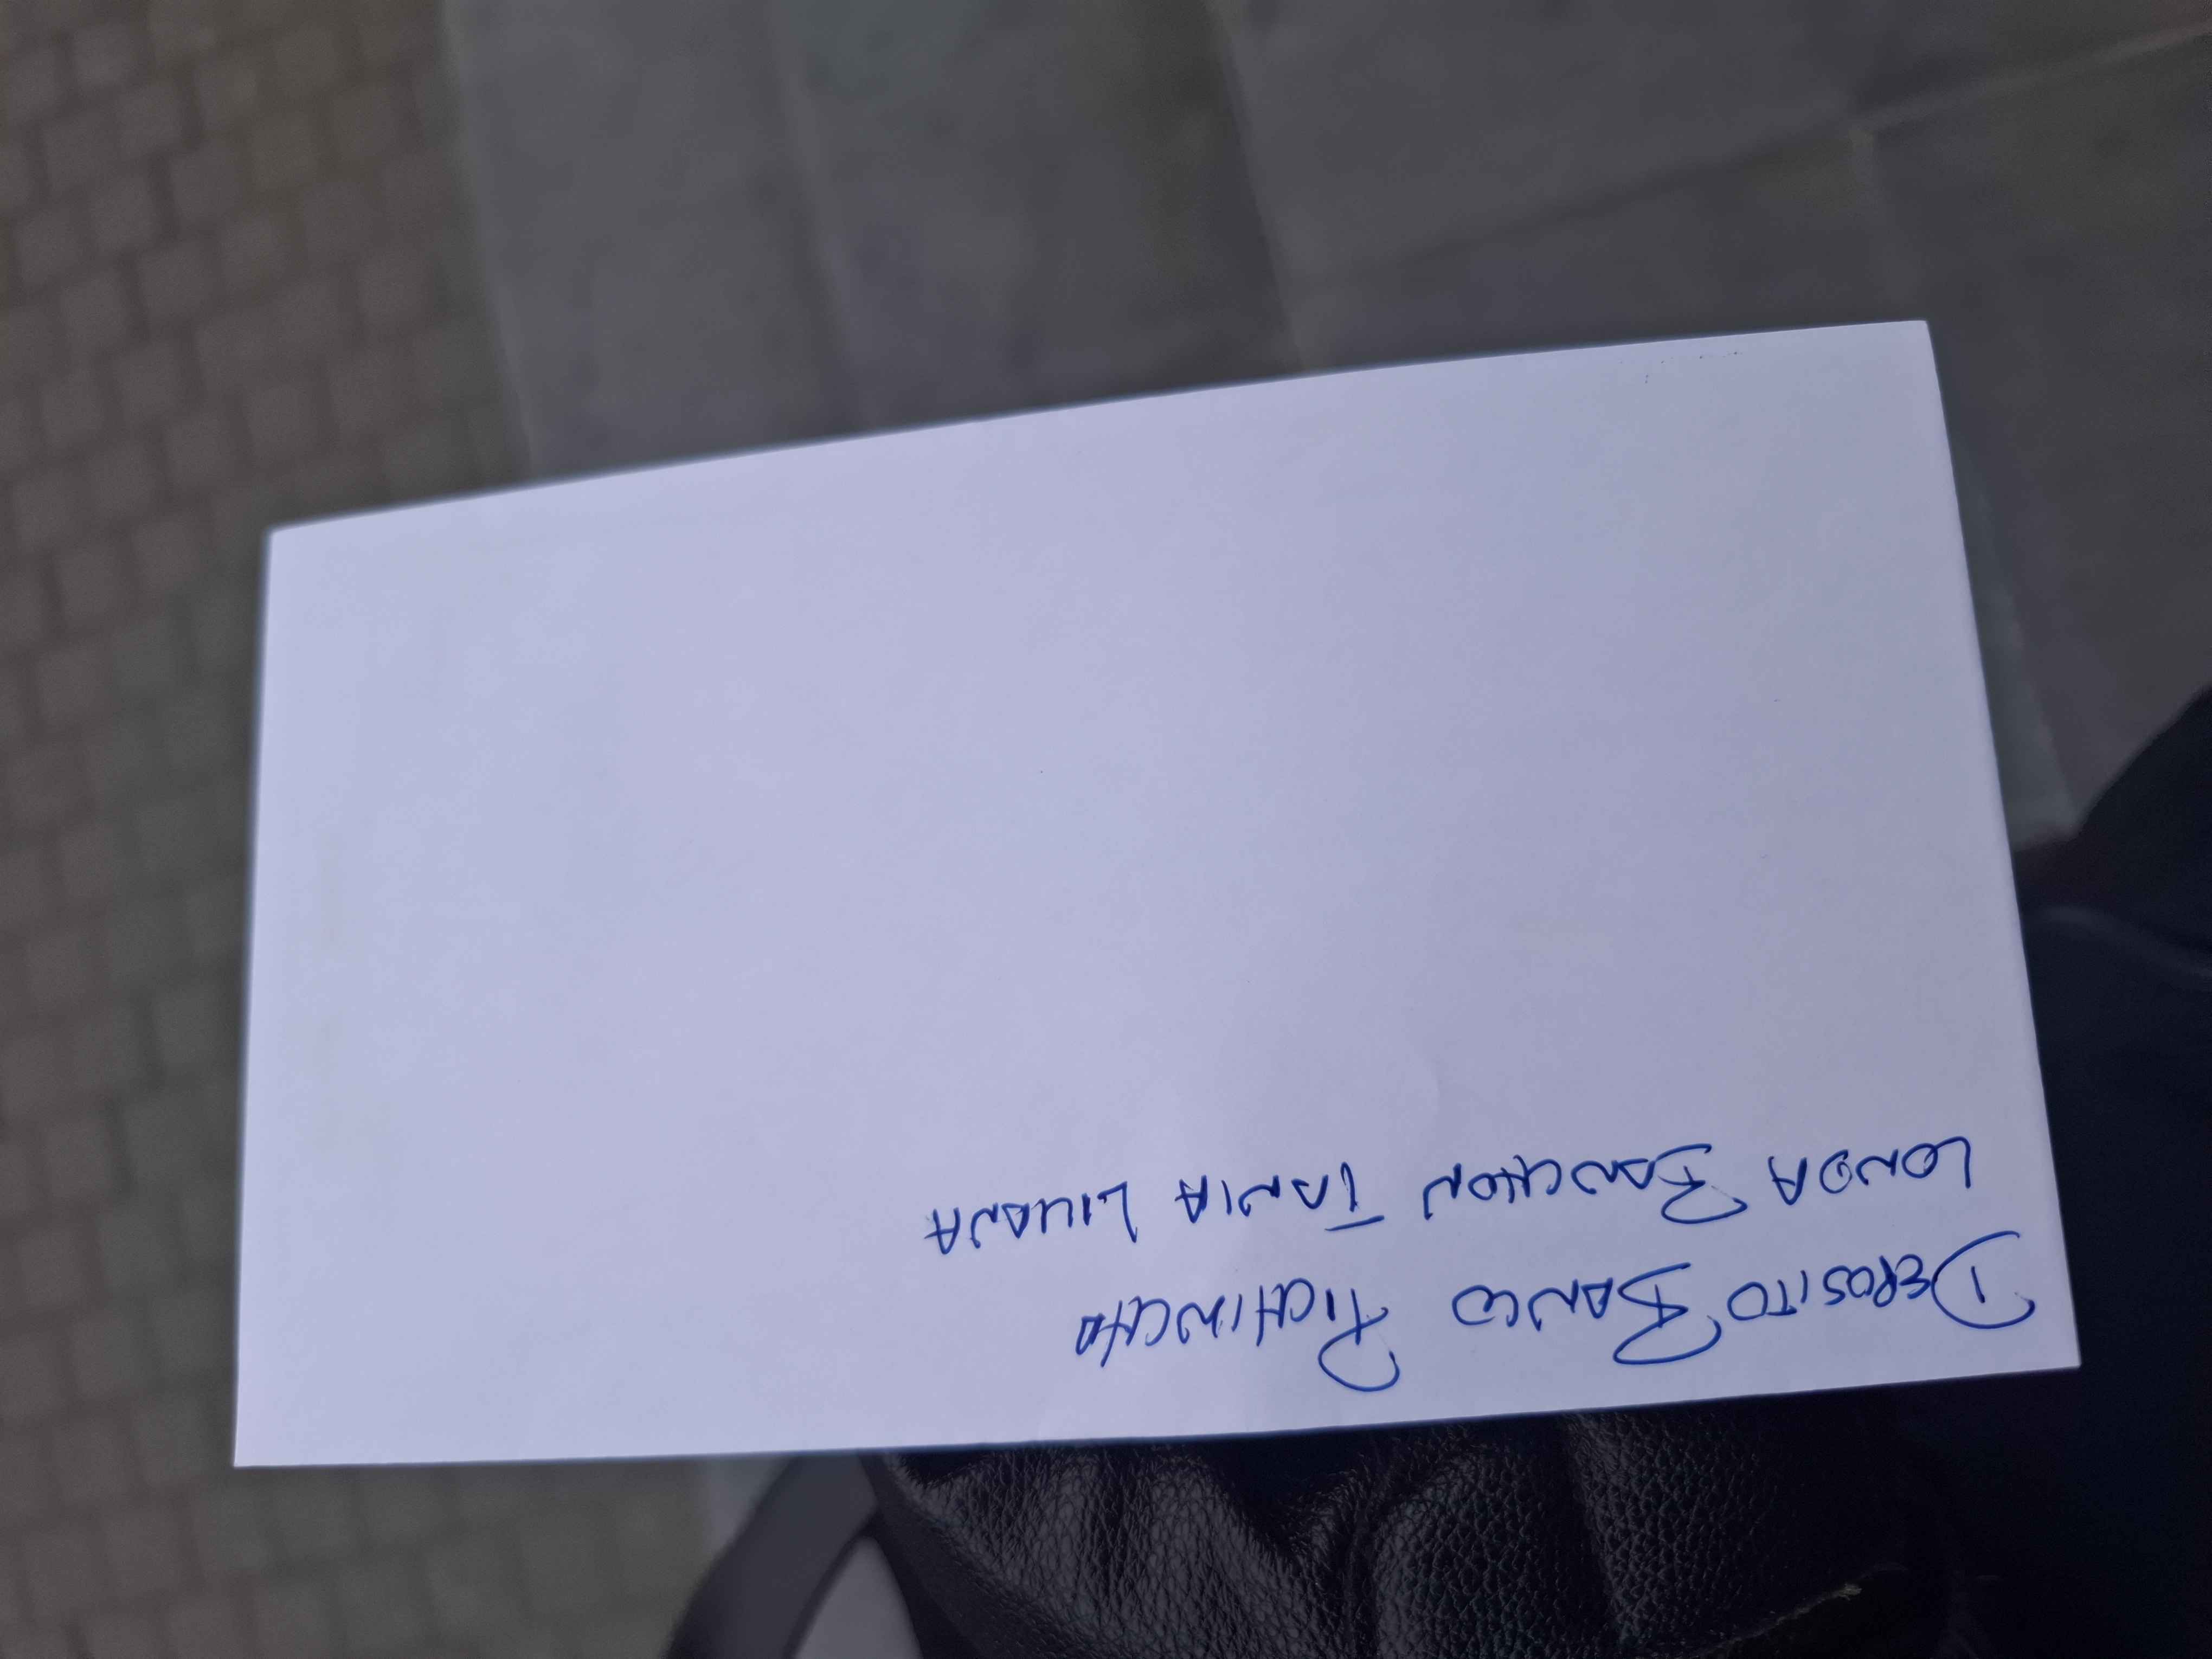 DEPOSITO BANCO PICHINCHA
LONDA BANCHON TANIA LILIANA